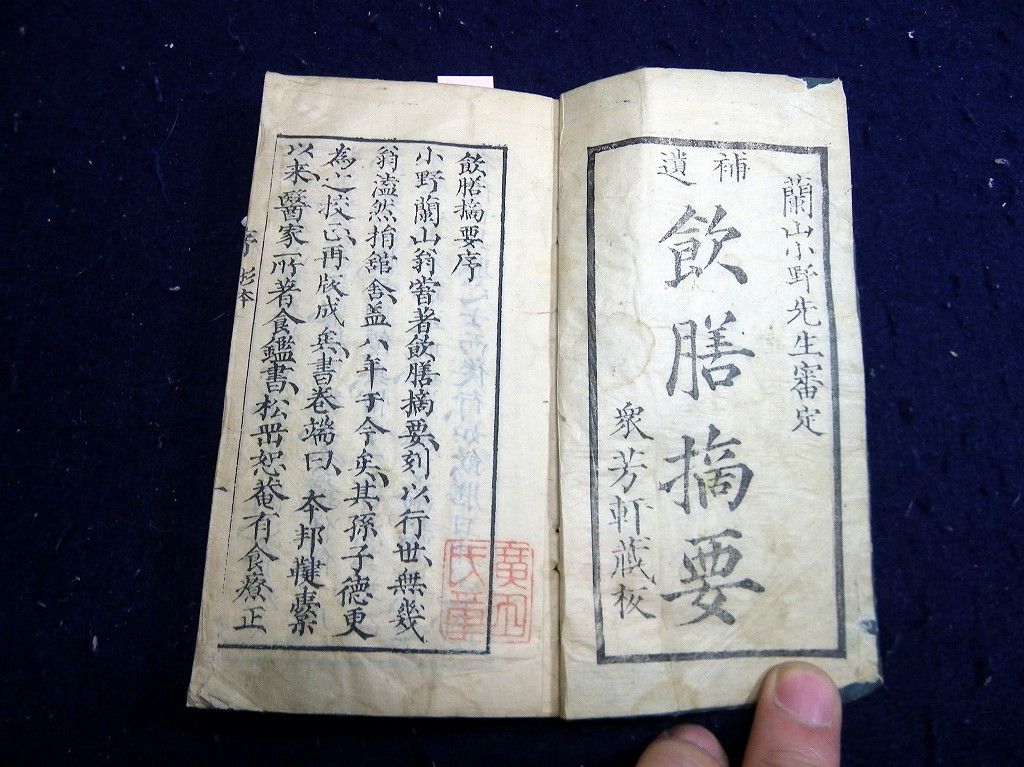 蘭山小野先生審定
補遺
飲膳摘要
衆芳軒蔵板
飲膳摘要序
小野蘭山翁嘗著飲膳摘要刻以行世無幾
翁溘然捐舘舎盖八年于今矣其孫子德更
為之校正再版成矣書卷端曰本邦鞬櫜
以来醫家所著食鑑書松岡恕菴有食療正